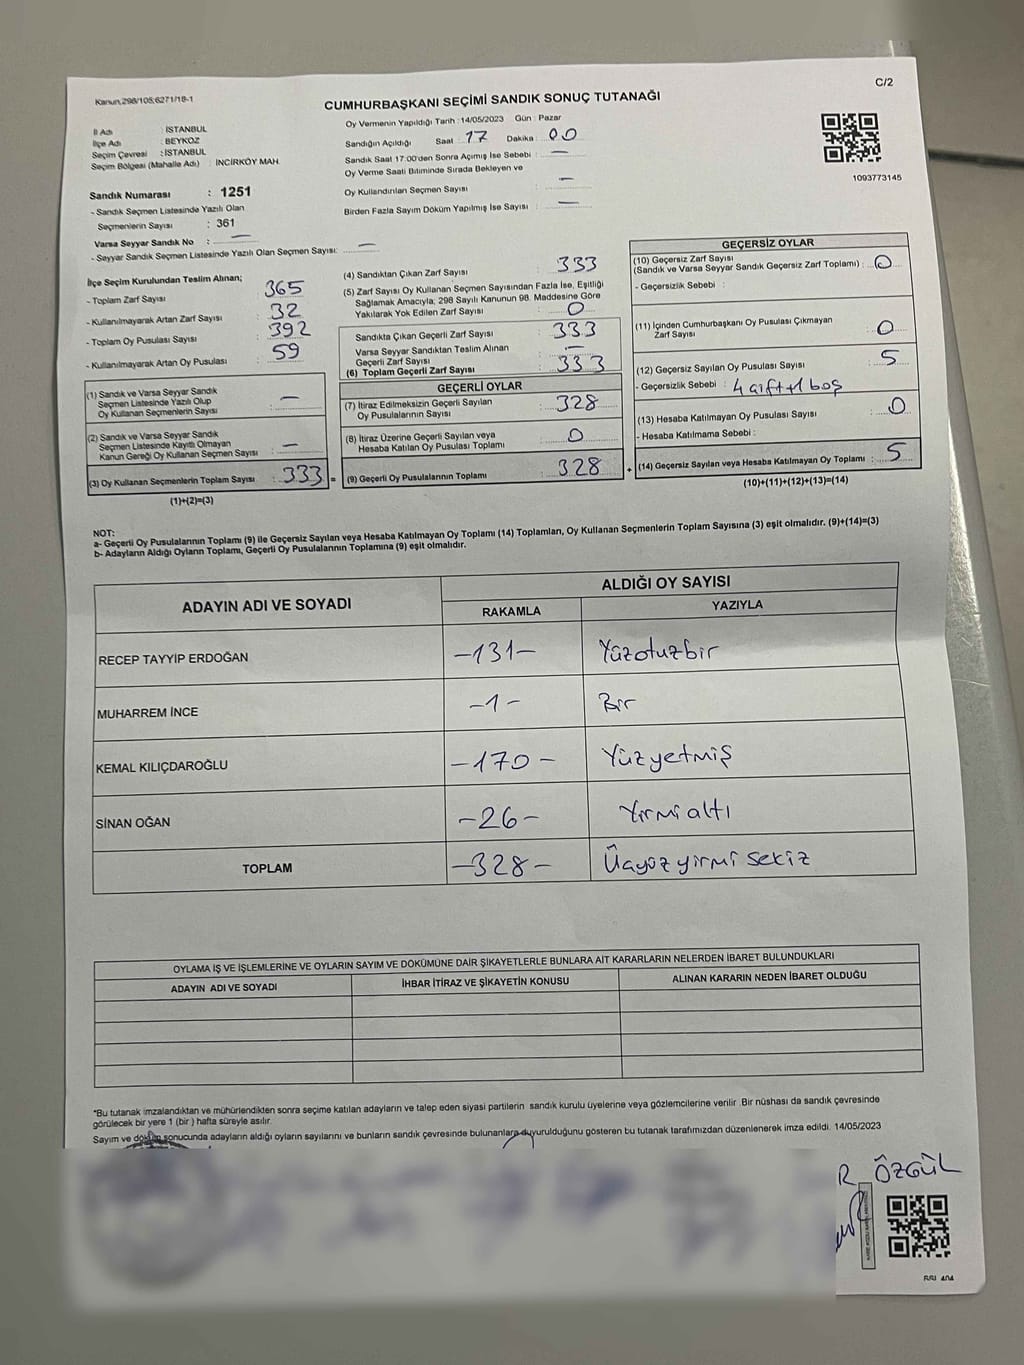 C/2
Kanun,298/105;6271/18-1
CUMHURBAŞKANI SEÇİMİ SANDIK SONUÇ TUTANAĞI
İl Adı : İSTANBUL
İlçe Adı : BEYKOZ
Seçim Çevresi : İSTANBUL
Seçim Bölgesi (Mahalle Adı) : İNCİRKÖY MAH.
Sandık Numarası : 1251
- Sandık Seçmen Listesinde Yazılı Olan
Seçmenlerin Sayısı : 361
Varsa Seyyar Sandık No : —
- Seyyar Sandık Seçmen Listesinde Yazılı Olan Seçmen Sayısı: —
Oy Vermenin Yapıldığı Tarih : 14/05/2023 Gün : Pazar
Sandığın Açıldığı Saat : 17 Dakika : 00
Sandık Saat 17:00'den Sonra Açımış İse Sebebi : —
Oy Verme Saati Bitiminde Sırada Bekleyen ve
Oy Kullandırılan Seçmen Sayısı : —
Birden Fazla Sayım Döküm Yapılmış İse Sayısı : —
1093773145
İlçe Seçim Kurulundan Teslim Alınan;
- Toplam Zarf Sayısı : 365
- Kullanılmayarak Artan Zarf Sayısı : 32
- Toplam Oy Pusulası Sayısı : 392
- Kullanılmayarak Artan Oy Pusulası : 59
(1) Sandık ve Varsa Seyyar Sandık
Seçmen Listesinde Yazılı Olup
Oy Kullanan Seçmenlerin Sayısı : —
(2) Sandık ve Varsa Seyyar Sandık
Seçmen Listesinde Kayıtlı Olmayan
Kanun Gereği Oy Kullanan Seçmen Sayısı : —
(3) Oy Kullanan Seçmenlerin Toplam Sayısı : 333 =
(1)+(2)=(3)
(4) Sandıktan Çıkan Zarf Sayısı : 333
(5) Zarf Sayısı Oy Kullanan Seçmen Sayısından Fazla İse, Eşitliği
Sağlamak Amacıyla; 298 Sayılı Kanunun 98. Maddesine Göre
Yakılarak Yok Edilen Zarf Sayısı : 0
Sandıkta Çıkan Geçerli Zarf Sayısı : 333
Varsa Seyyar Sandıktan Teslim Alınan
Geçerli Zarf Sayısı : —
(6) Toplam Geçerli Zarf Sayısı : 333
GEÇERLİ OYLAR
(7) İtiraz Edilmeksizin Geçerli Sayılan
Oy Pusulalarının Sayısı : 328
(8) İtiraz Üzerine Geçerli Sayılan veya
Hesaba Katılan Oy Pusulası Toplamı : 0
(9) Geçerli Oy Pusulalarının Toplamı : 328 +
GEÇERSİZ OYLAR
(10) Geçersiz Zarf Sayısı
(Sandık ve Varsa Seyyar Sandık Geçersiz Zarf Toplamı) : 0
- Geçersizlik Sebebi :
(11) İçinden Cumhurbaşkanı Oy Pusulası Çıkmayan
Zarf Sayısı : 0
(12) Geçersiz Sayılan Oy Pusulası Sayısı : 5
- Geçersizlik Sebebi : 4 çift+1 boş
(13) Hesaba Katılmayan Oy Pusulası Sayısı : 0
- Hesaba Katılmama Sebebi :
(14) Geçersiz Sayılan veya Hesaba Katılmayan Oy Toplamı : 5
(10)+(11)+(12)+(13)=(14)
NOT:
a- Geçerli Oy Pusulalarının Toplamı (9) ile Geçersiz Sayılan veya Hesaba Katılmayan Oy Toplamı (14) Toplamları, Oy Kullanan Seçmenlerin Toplam Sayısına (3) eşit olmalıdır. (9)+(14)=(3)
b- Adayların Aldığı Oyların Toplamı, Geçerli Oy Pusulalarının Toplamına (9) eşit olmalıdır.
ADAYIN ADI VE SOYADI ALDIĞI OY SAYISI
RAKAMLA YAZIYLA
RECEP TAYYİP ERDOĞAN -131- Yüzotuzbir
MUHARREM İNCE -1- Bir
KEMAL KILIÇDAROĞLU -170- Yüzyetmiş
SİNAN OĞAN -26- Yirmialtı
TOPLAM -328- Üçyüzyirmi sekiz
OYLAMA İŞ VE İŞLEMLERİNE VE OYLARIN SAYIM VE DÖKÜMÜNE DAİR ŞİKAYETLERLE BUNLARA AİT KARARLARIN NELERDEN İBARET BULUNDUKLARI
ADAYIN ADI VE SOYADI İHBAR İTİRAZ VE ŞİKAYETİN KONUSU ALINAN KARARIN NEDEN İBARET OLDUĞU
*Bu tutanak imzalandıktan ve mühürlendikten sonra seçime katılan adayların ve talep eden siyasi partilerin sandık kurulu üyelerine veya gözlemcilerine verilir. Bir nüshası da sandık çevresinde
görülecek bir yere 1 (bir) hafta süreyle asılır.
Sayım ve döküm sonucunda adayların aldığı oyların sayılarını ve bunların sandık çevresinde bulunanlara duyurulduğunu gösteren bu tutanak tarafımızdan düzenlenerek imza edildi. 14/05/2023
R ÖZGÜL